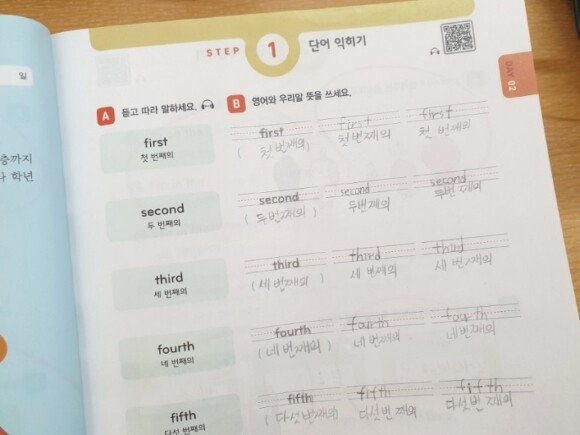 일
층까지
나 학년
STEP 1 단어 익히기
DAY 02
A 듣고 따라 말하세요.
B 영어와 우리말 뜻을 쓰세요.
first
첫 번째의
first first first
( 첫 번째의) 첫 번째의 첫 번째의
second
두 번째의
second second second
( 두번째의 ) 두번째의 두번째의
third
세 번째의
third third third
( 세 번째의 ) 세 번째의 세 번째의
fourth
네 번째의
fourth fourth fourth
( 네 번째의 ) 네 번째의 네번째의
fifth
다섯 번째의
fifth fifth fifth
( 다섯 번째의) 다섯번째의 다섯번째의